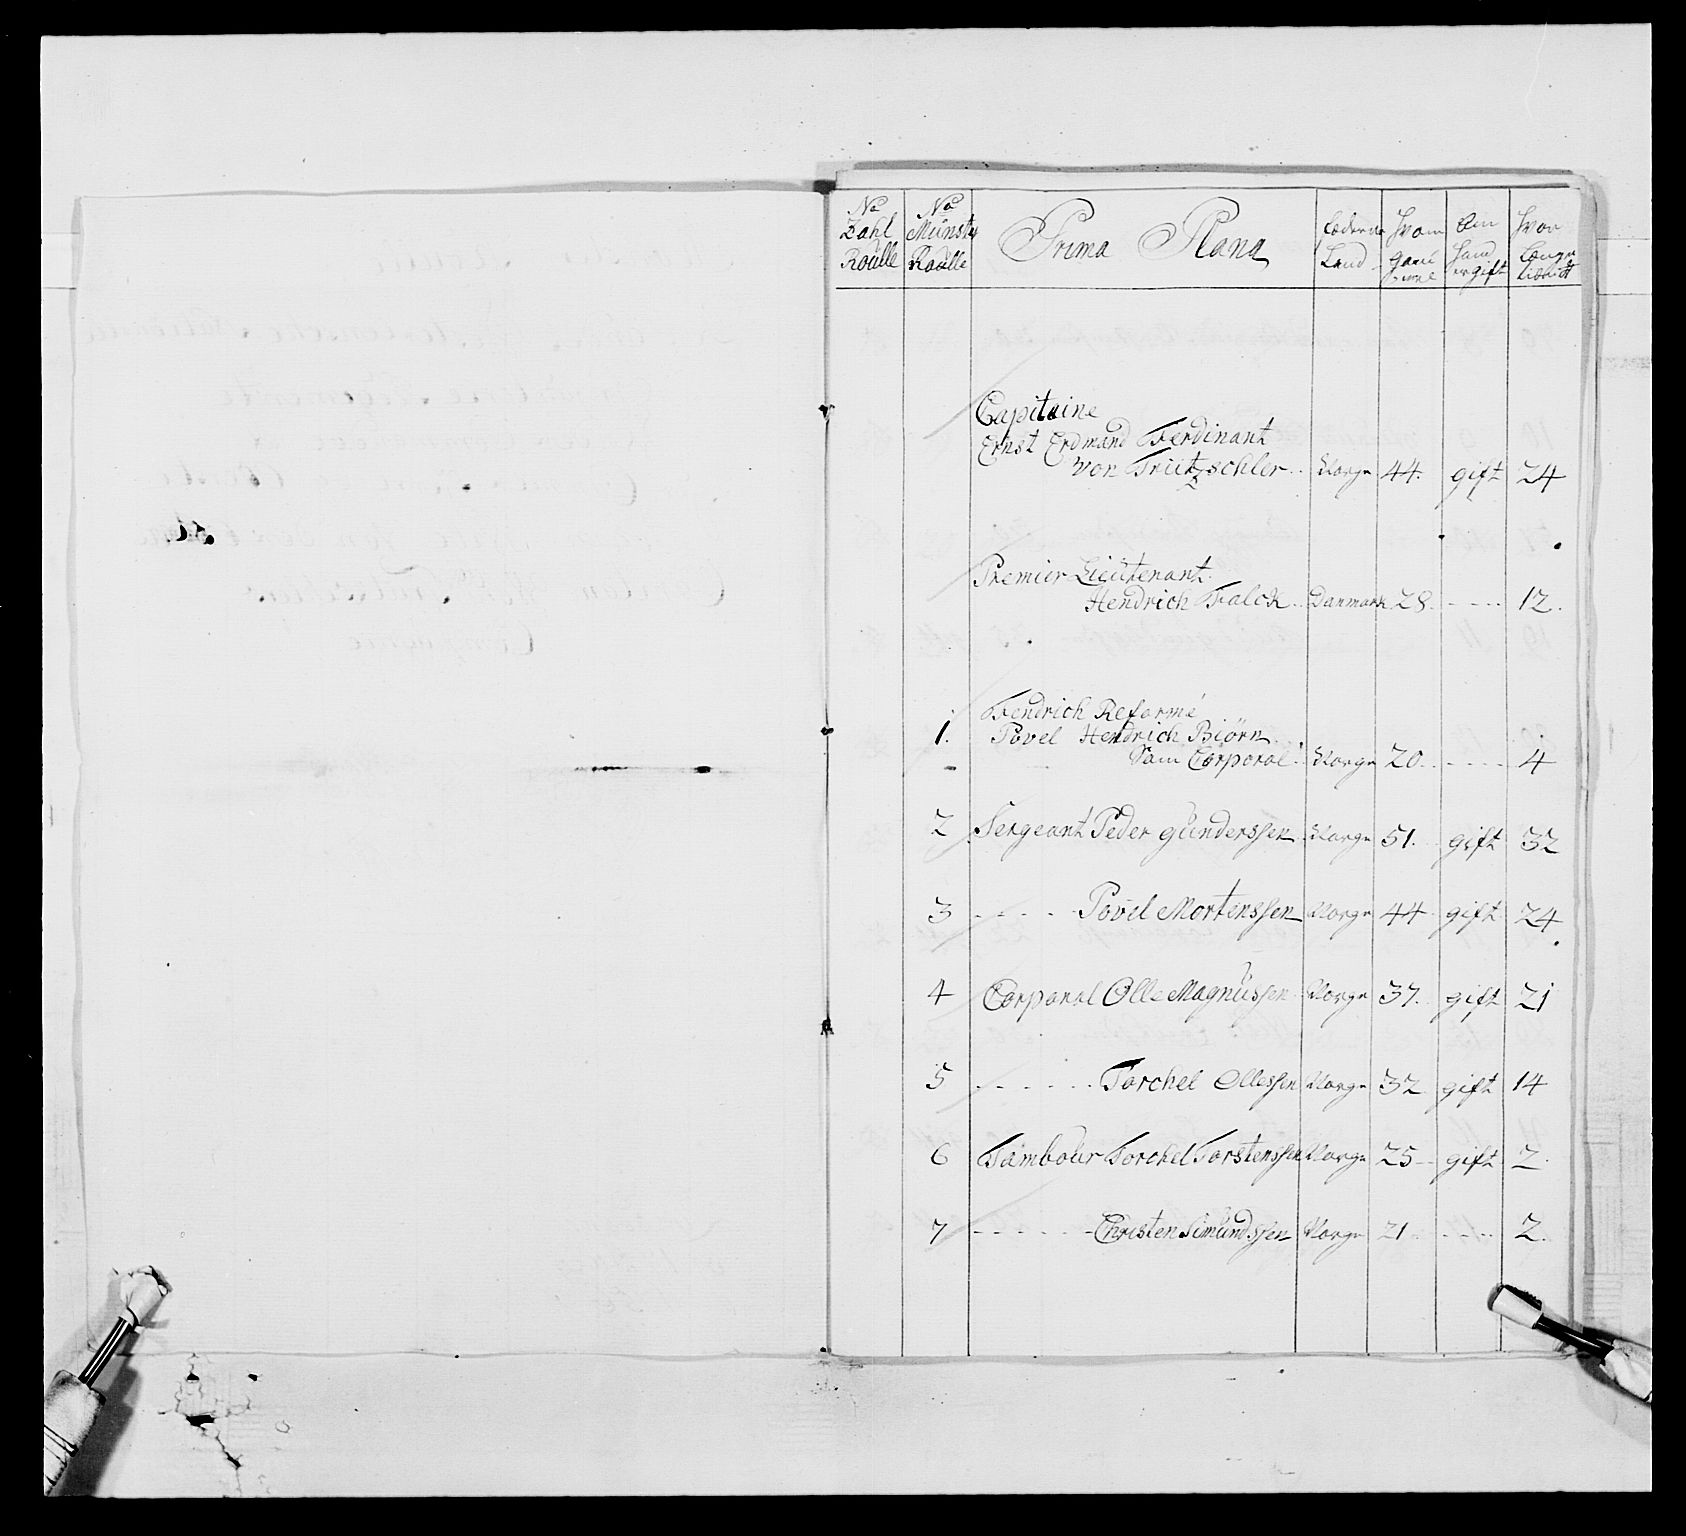 No Zahl Roulle | No Münster Roulle | Prima Plana | Fæderne Land | hvor gammel | Om Hand er gift | hvor Længe tient
Capitaine
Ernst Erdmand Ferdinant
von Trützschler | Norge | 44. | gift | 24
Premier Lieutenant
Hendrich Falck | Danmark | 28. | 12.
Fendrich Reformé
1. Povel Hendrich Biörn
Sam Corporal | Norge | 20. | 4
2 Sergeant Peder Gunderssen | Norge | 51. | gift | 32
3 Povel Mortenssen | Norge | 44 | gift | 24
4 Corporal Olle Magnussen | Norge | 37. | gift | 21
5 Torchel Ollessen | Norge | 32 | gift | 14
6 Tambour Torchel Torstenssen | Norge | 25 | gift | 2.
7 Christen Simundssen | Norge | 21 | 2.